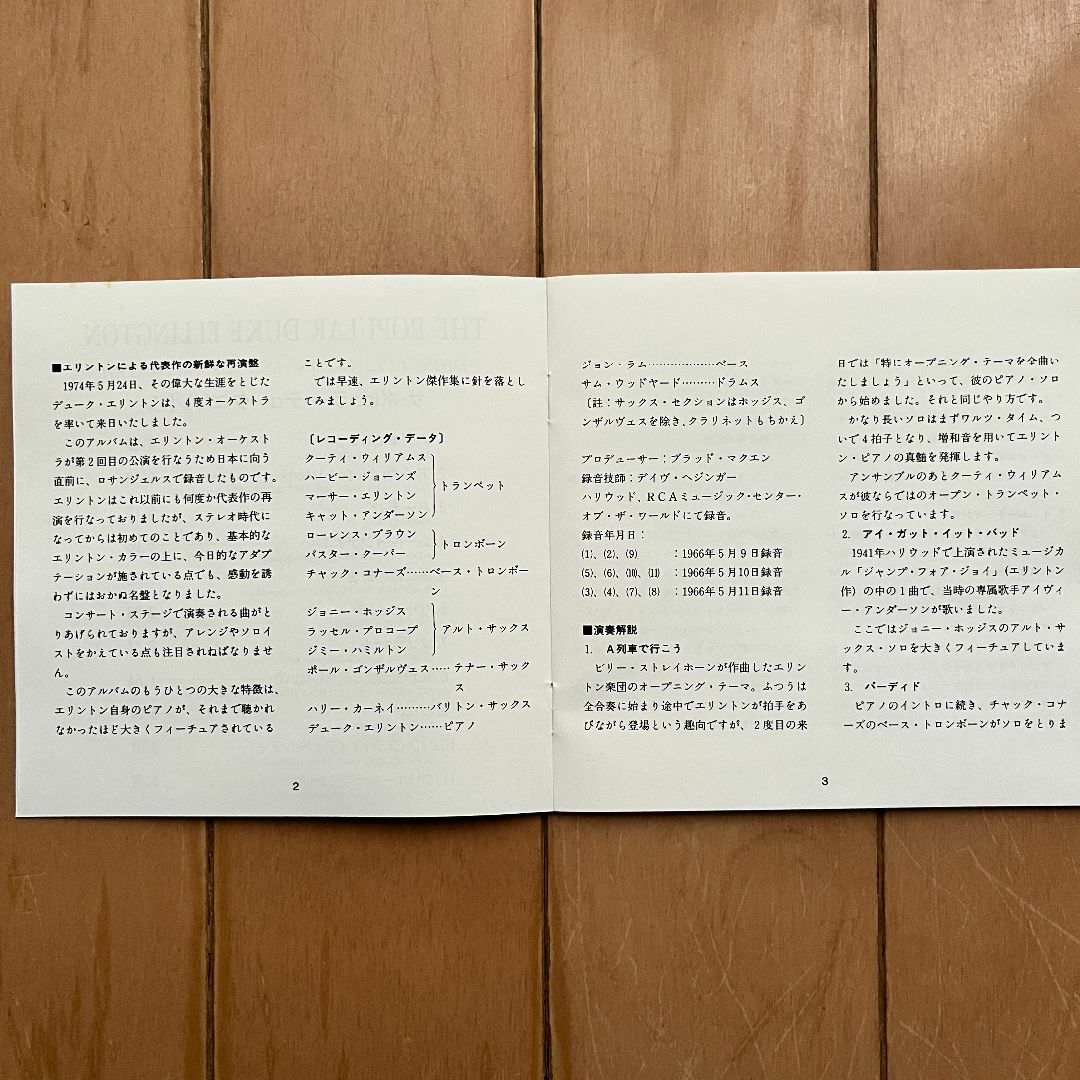 ■エリントンによる代表作の新鮮な再演盤
1974年5月24日、その偉大な生涯をとじた
デューク・エリントンは、4度オーケストラ
を率いて来日いたしました。
このアルバムは、エリントン・オーケスト
ラが第2回目の公演を行なうため日本に向う
直前に、ロサンジェルスで録音したものです。
エリントンはこれ以前にも何度か代表作の再
演を行なっておりましたが、ステレオ時代に
なってからは初めてのことであり、基本的な
エリントン・カラーの上に、今日的なアダプ
テーションが施されている点でも、感動を誘
わずにはおかぬ名盤となりました。
コンサート・ステージで演奏される曲がと
りあげられておりますが、アレンジやソロイ
ストをかえている点も注目されねばなりませ
ん。
このアルバムのもうひとつの大きな特徴は、
エリントン自身のピアノが、それまで聴かれ
なかったほど大きくフィーチュアされている
ことです。
では早速、エリントン傑作集に針を落とし
てみましょう。
〔レコーディング・データ〕
クーティ・ウィリアムス
ハービー・ジョーンズ
マーサー・エリントン
キャット・アンダーソン
トランペット
ローレンス・ブラウン
バスター・クーパー
トロンボーン
チャック・コナーズ……ベース・トロンボー
ン
ジョニー・ホッジス
ラッセル・プロコープ
ジミー・ハミルトン
アルト・サックス
ポール・ゴンザルヴェス……テナー・サック
ス
ハリー・カーネイ………バリトン・サックス
デューク・エリントン……ピアノ
2
ジョン・ラム………………ベース
サム・ウッドヤード………ドラムス
〔註：サックス・セクションはホッジス、ゴ
ンザルヴェスを除き、クラリネットもちかえ〕
プロデューサー：ブラッド・マクエン
録音技師：デイヴ・ヘジンガー
ハリウッド、RCAミュージック・センター・
オブ・ザ・ワールドにて録音。
録音年月日：
(1)、(2)、(9)　：1966年5月9日録音
(5)、(6)、(10)、(11)　：1966年5月10日録音
(3)、(4)、(7)、(8)　：1966年5月11日録音
■演奏解説
1.　A列車で行こう
ビリー・ストレイホーンが作曲したエリン
トン楽団のオープニング・テーマ。ふつうは
全合奏に始まり途中でエリントンが拍手をあ
びながら登場という趣向ですが、2度目の来
日では「特にオープニング・テーマを全曲い
たしましょう」といって、彼のピアノ・ソロ
から始めました。それと同じやり方です。
かなり長いソロはまずワルツ・タイム、つ
いで4拍子となり、増和音を用いてエリント
ン・ピアノの真髄を発揮します。
アンサンブルのあとクーティ・ウィリアム
スが彼ならではのオープン・トランペット・
ソロを行なっています。
2.　アイ・ガット・イット・バッド
1941年ハリウッドで上演されたミュージカ
ル「ジャンプ・フォア・ジョイ」(エリントン
作）の中の1曲で、当時の専属歌手アイヴィ
ー・アンダーソンが歌いました。
ここではジョニー・ホッジスのアルト・サ
ックス・ソロを大きくフィーチュアしていま
す。
3.　パーディド
ピアノのイントロに続き、チャック・コナ
ーズのベース・トロンボーンがソロをとりま
3